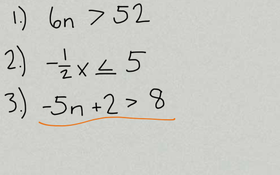 1.) 6n > 52
2.) -1/2 x ≤ 5
3.) -5n + 2 > 8